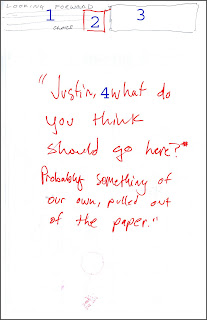 LOOKING FORWARD
1 2 3
"Justin, 4 what do
you think
should go here?"
Probably something of
our own, pulled out
of the paper."